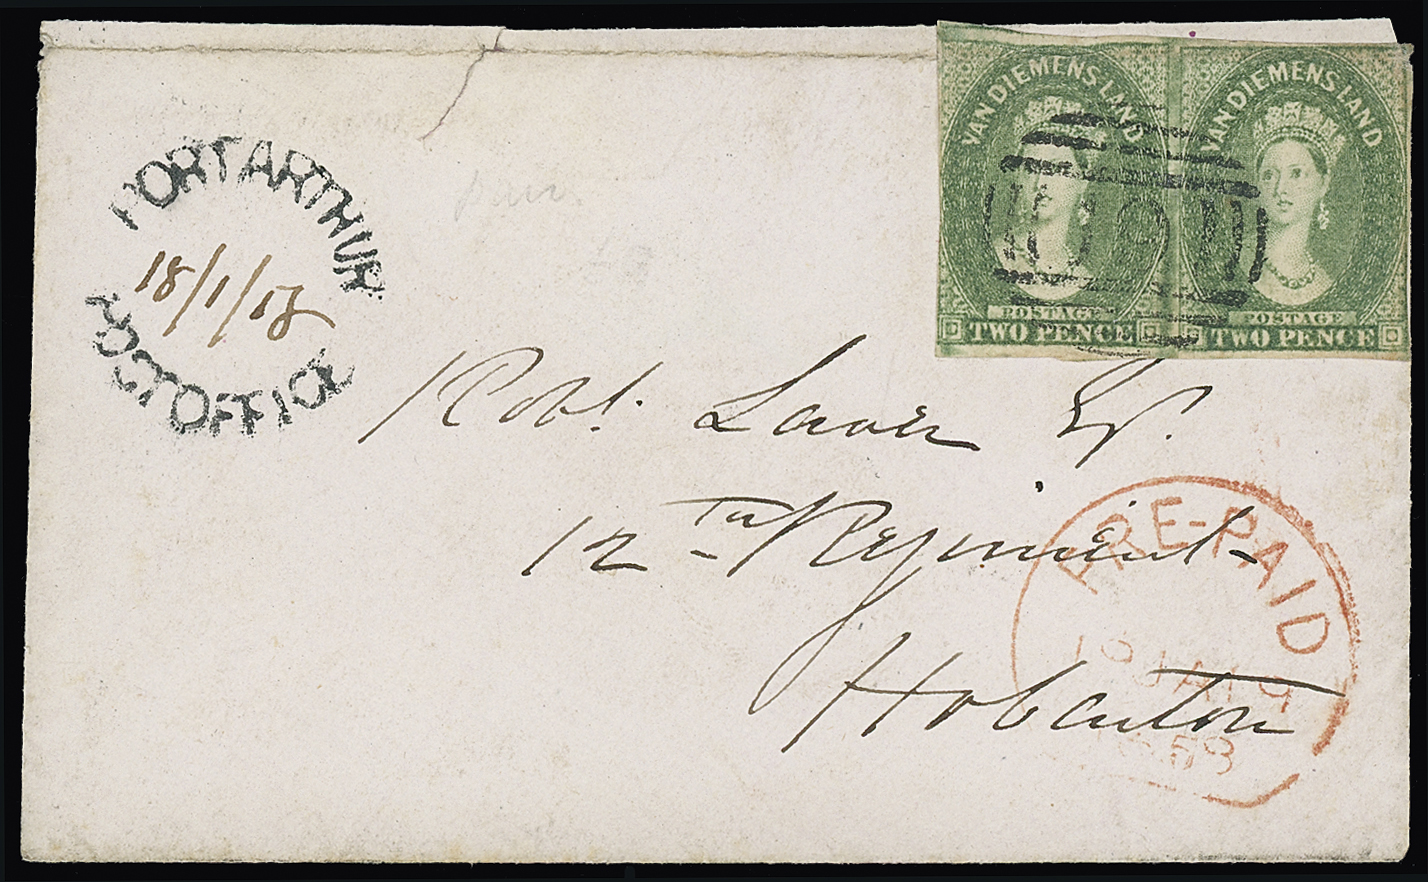 PORT ARTHUR
18/1/58
POST OFFICE
pair.
VAN DIEMENS LAND
POSTAGE
TWO PENCE
VAN DIEMENS LAND
POSTAGE
TWO PENCE
Robt. Laver Esq.
12th Regiment
Hobarton
PRE-PAID
19 JA 19
1858